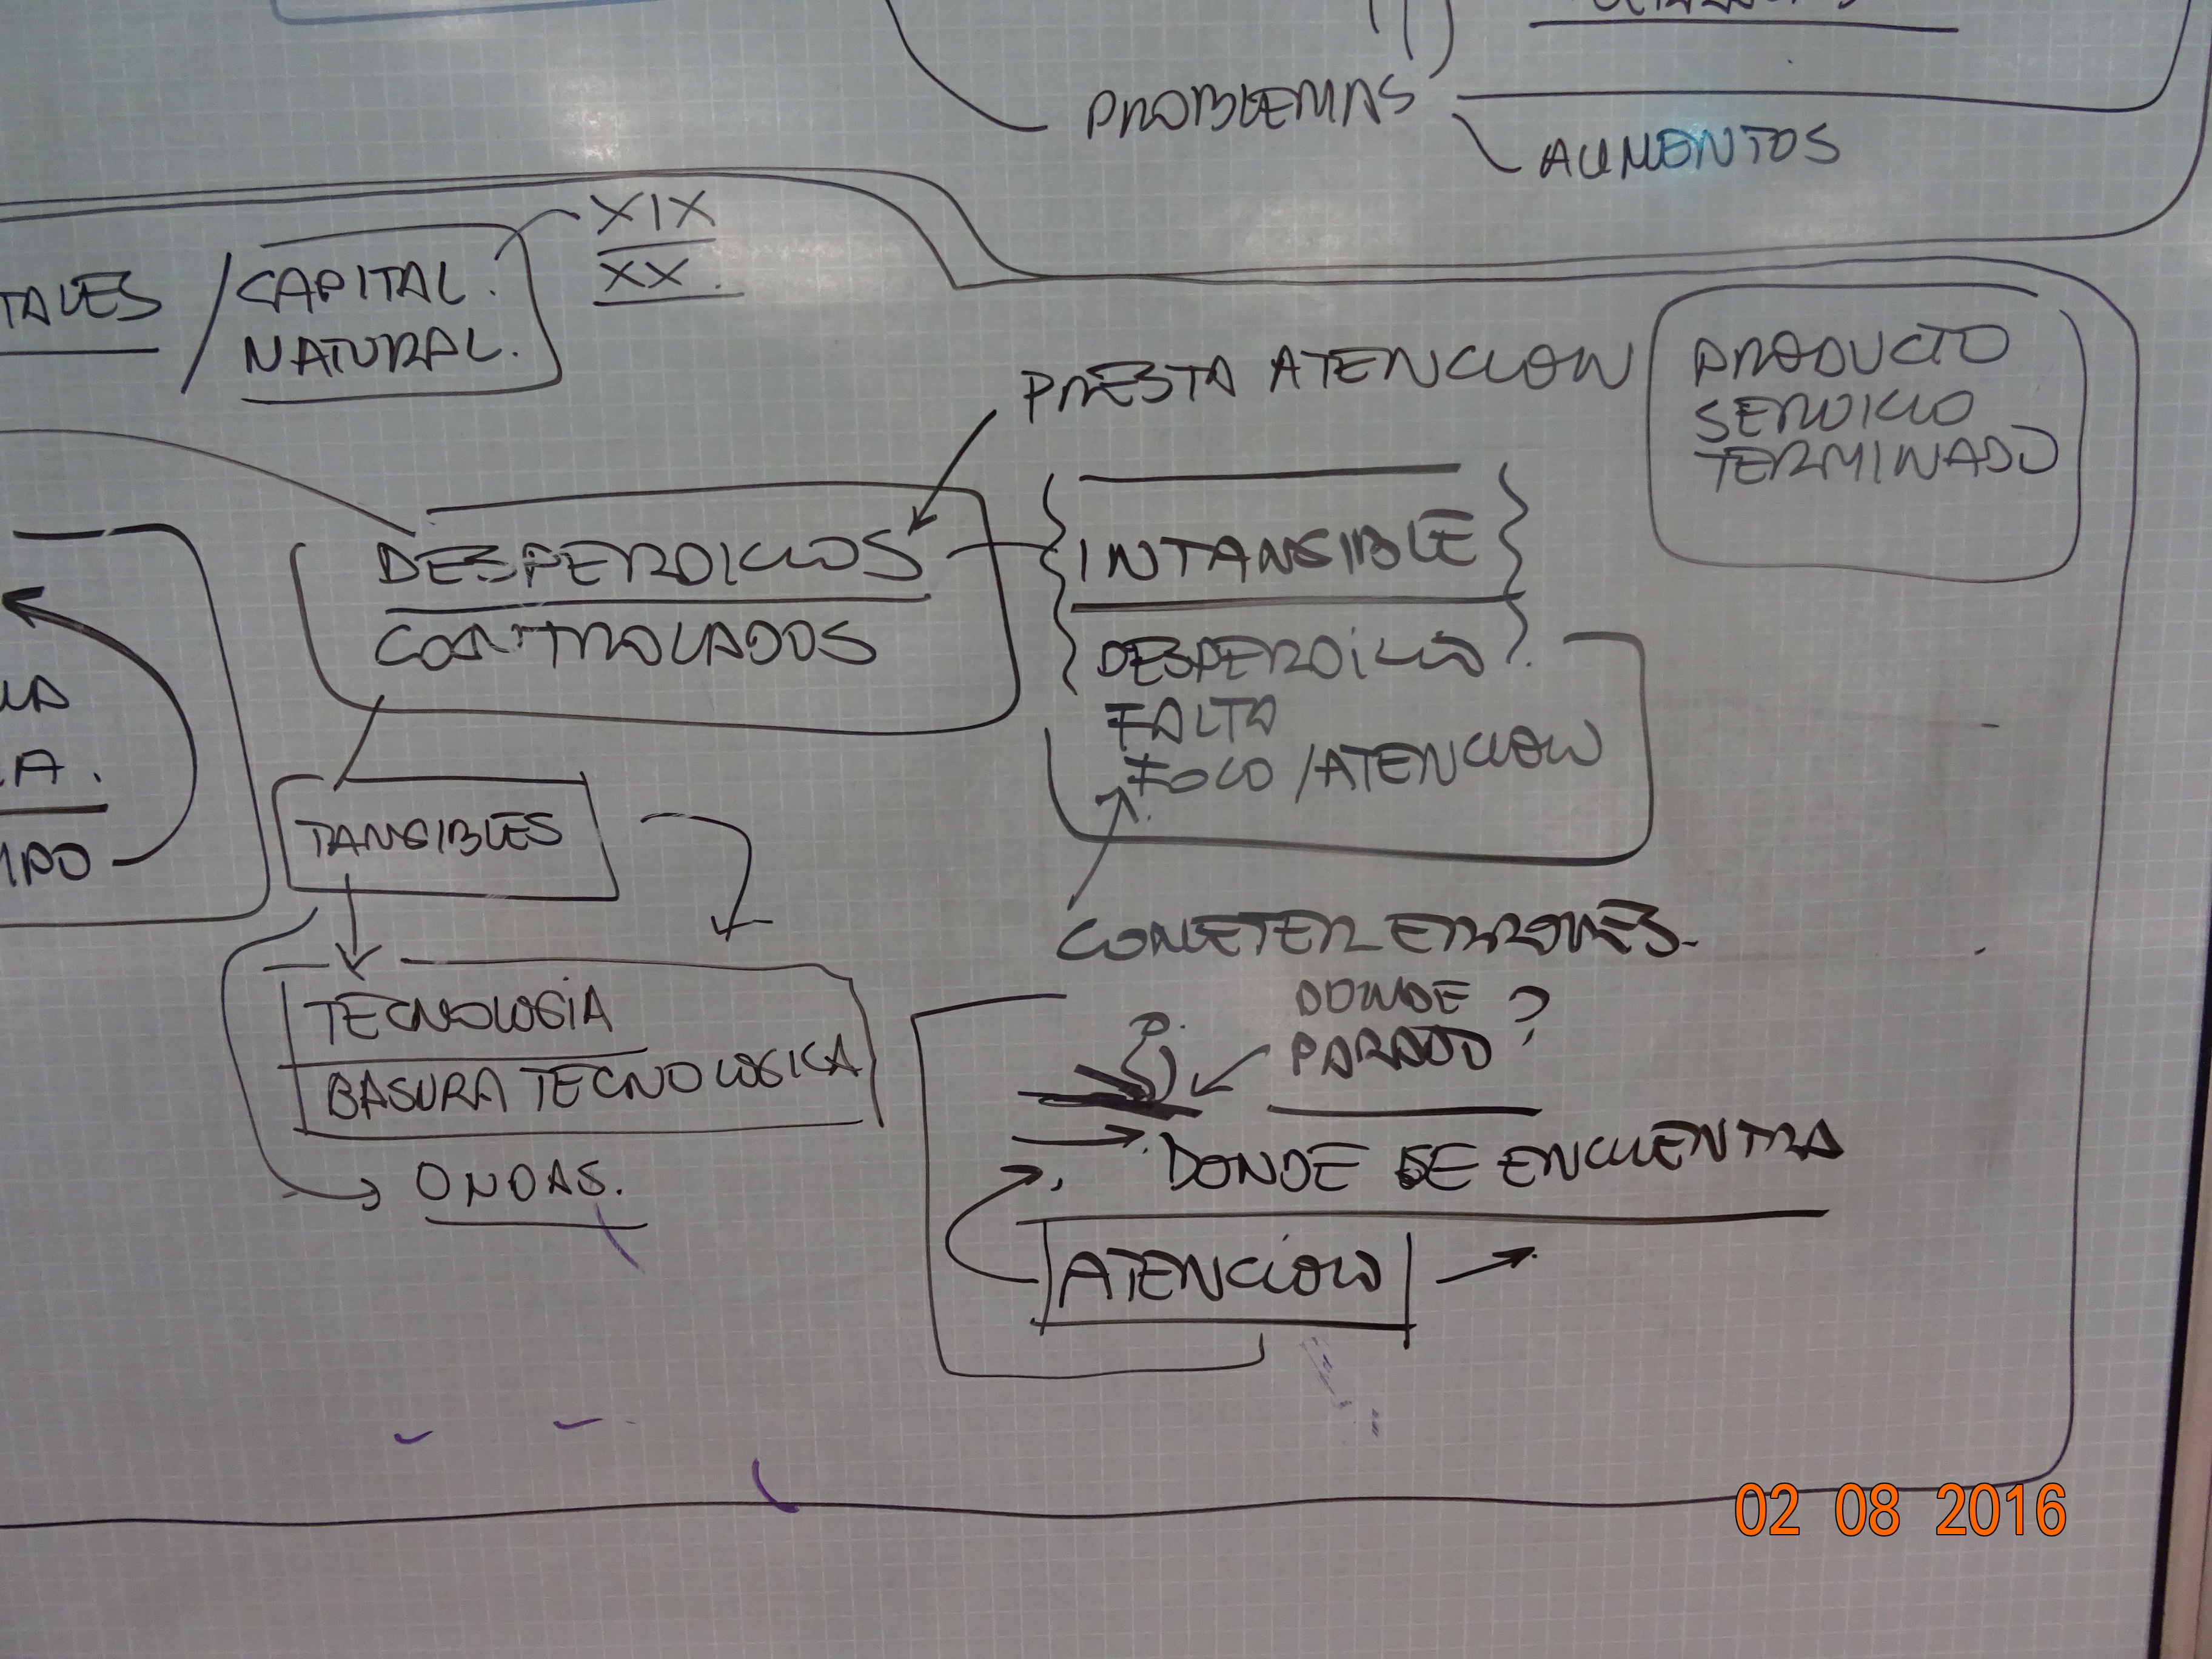 PROBLEMAS
AUMENTOS
XIX
XX.
TALES / CAPITAL.
NATURAL.
PRESTA ATENCION
PRODUCTO
SERVICIO
TERMINADO
DESPERDICIOS
CONTROLADOS
INTANGIBLE
DESPERDiCIO?
FALTA
FOCO / ATENCION
TANGIBLES
COMETER ERRORES.
TECNOLOGíA
BASURA TECNOLOGICA
ONDAS.
DONDE
PARADO?
DONDE SE ENCUENTRA
ATENCIÓN
02 08 2016